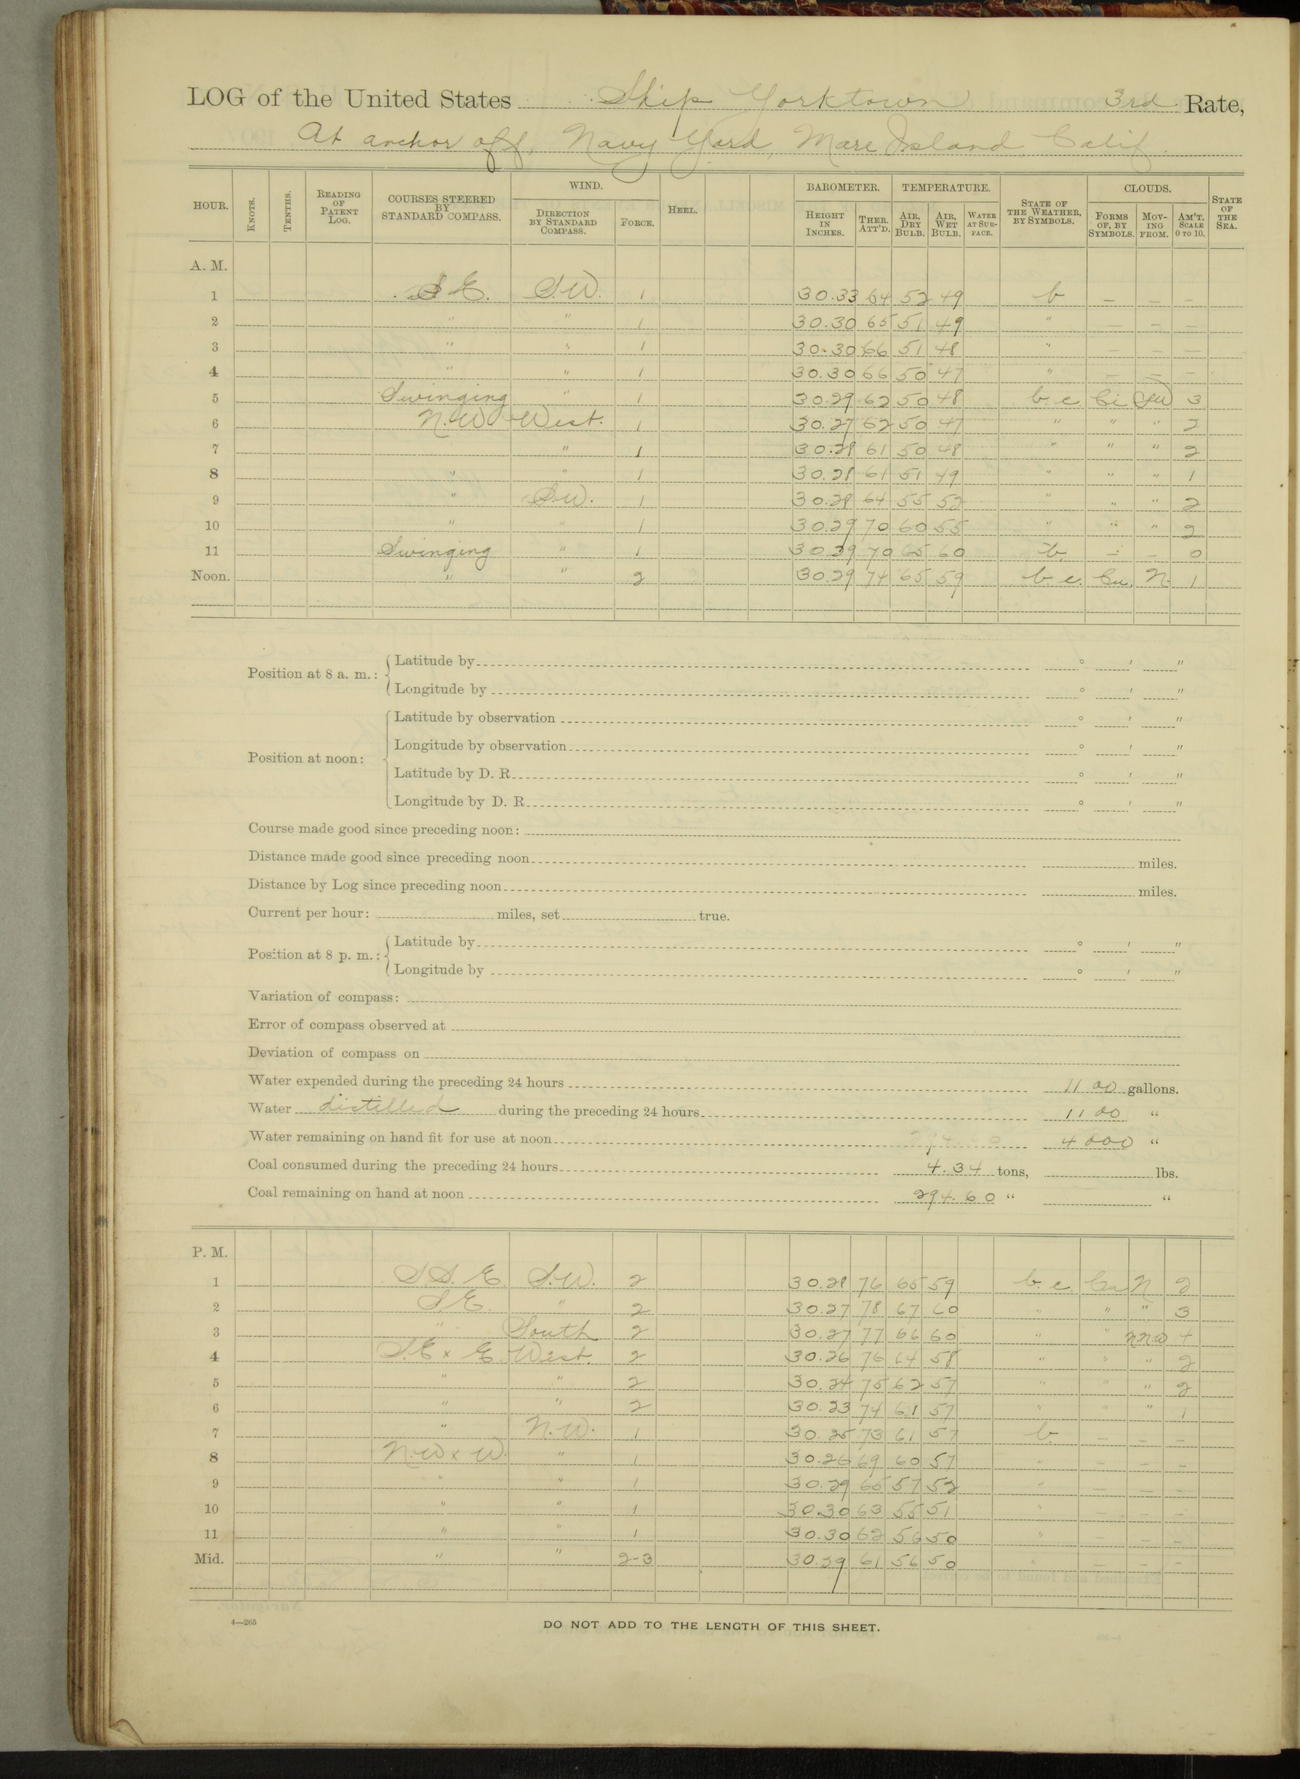 LOG of the United States Ship Yorktown 3rd Rate,
At anchor off Navy Yard, Mare Island Calif.
HOUR. KNOTS. TENTHS. READING OF PATENT LOG. COURSES STEERED BY STANDARD COMPASS. WIND. DIRECTION BY STANDARD COMPASS. FORCE. HEEL. BAROMETER. HEIGHT IN INCHES. THER. ATT'D. TEMPERATURE. AIR, DRY BULB. AIR, WET BULB. WATER AT SURFACE. STATE OF THE WEATHER, BY SYMBOLS. CLOUDS. FORMS OF, BY SYMBOLS. MOVING FROM. AM'T. SCALE 0 TO 10. STATE OF THE SEA.
A. M.
1 S.E. S.W. 1 30.33 64 52 49 b — — —
2 " " 1 30.30 65 51 49 " — — —
3 " " 1 30.30 66 51 48 " — — —
4 " " 1 30.30 66 50 47 " — — —
5 Swinging " 1 30.29 62 50 48 b.c. Ci SW 3
6 N.W. West. 1 30.27 62 50 47 " " " 2
7 " 1 30.28 61 50 48 " " " 2
8 " " 1 30.28 61 51 49 " " " 1
9 " S.W. 1 30.28 64 55 52 " " " 2
10 " " 1 30.29 70 60 55 " " " 2
11 Swinging " 1 30.29 70 65 60 b. — — 0
Noon. " " 2 30.29 74 65 59 b.c. Cu. N. 1
Position at 8 a. m.: Latitude by ° ' "
Longitude by ° ' "
Position at noon: Latitude by observation ° ' "
Longitude by observation ° ' "
Latitude by D. R. ° ' "
Longitude by D. R. ° ' "
Course made good since preceding noon:
Distance made good since preceding noon miles.
Distance by Log since preceding noon miles.
Current per hour: miles, set true.
Position at 8 p. m.: Latitude by ° ' "
Longitude by ° ' "
Variation of compass:
Error of compass observed at
Deviation of compass on
Water expended during the preceding 24 hours 1100 gallons.
Water distilled during the preceding 24 hours 1100 "
Water remaining on hand fit for use at noon 4000 "
Coal consumed during the preceding 24 hours 4.34 tons, lbs.
Coal remaining on hand at noon 294.60 " "
P. M.
1 S.S.E. S.W. 2 30.28 76 65 59 b.c. Cu N 2
2 S.E. " 2 30.27 78 67 60 " " " 3
3 " South 2 30.27 77 66 60 " " NNW 4
4 S.E x E West. 2 30.26 76 64 58 " " " 2
5 " " 2 30.24 75 62 57 " " " 2
6 " " 2 30.23 74 61 57 " " " 1
7 " N.W. 1 30.25 73 61 57 b. — — —
8 N.W x W. " 1 30.26 69 60 57 " — — —
9 " " 1 30.29 65 57 52 " — — —
10 " " 1 30.30 63 55 51 " — — —
11 " " 1 30.30 62 56 50 " — — —
Mid. " " 2-3 30.29 61 56 50 " — — —
4—265
DO NOT ADD TO THE LENGTH OF THIS SHEET.